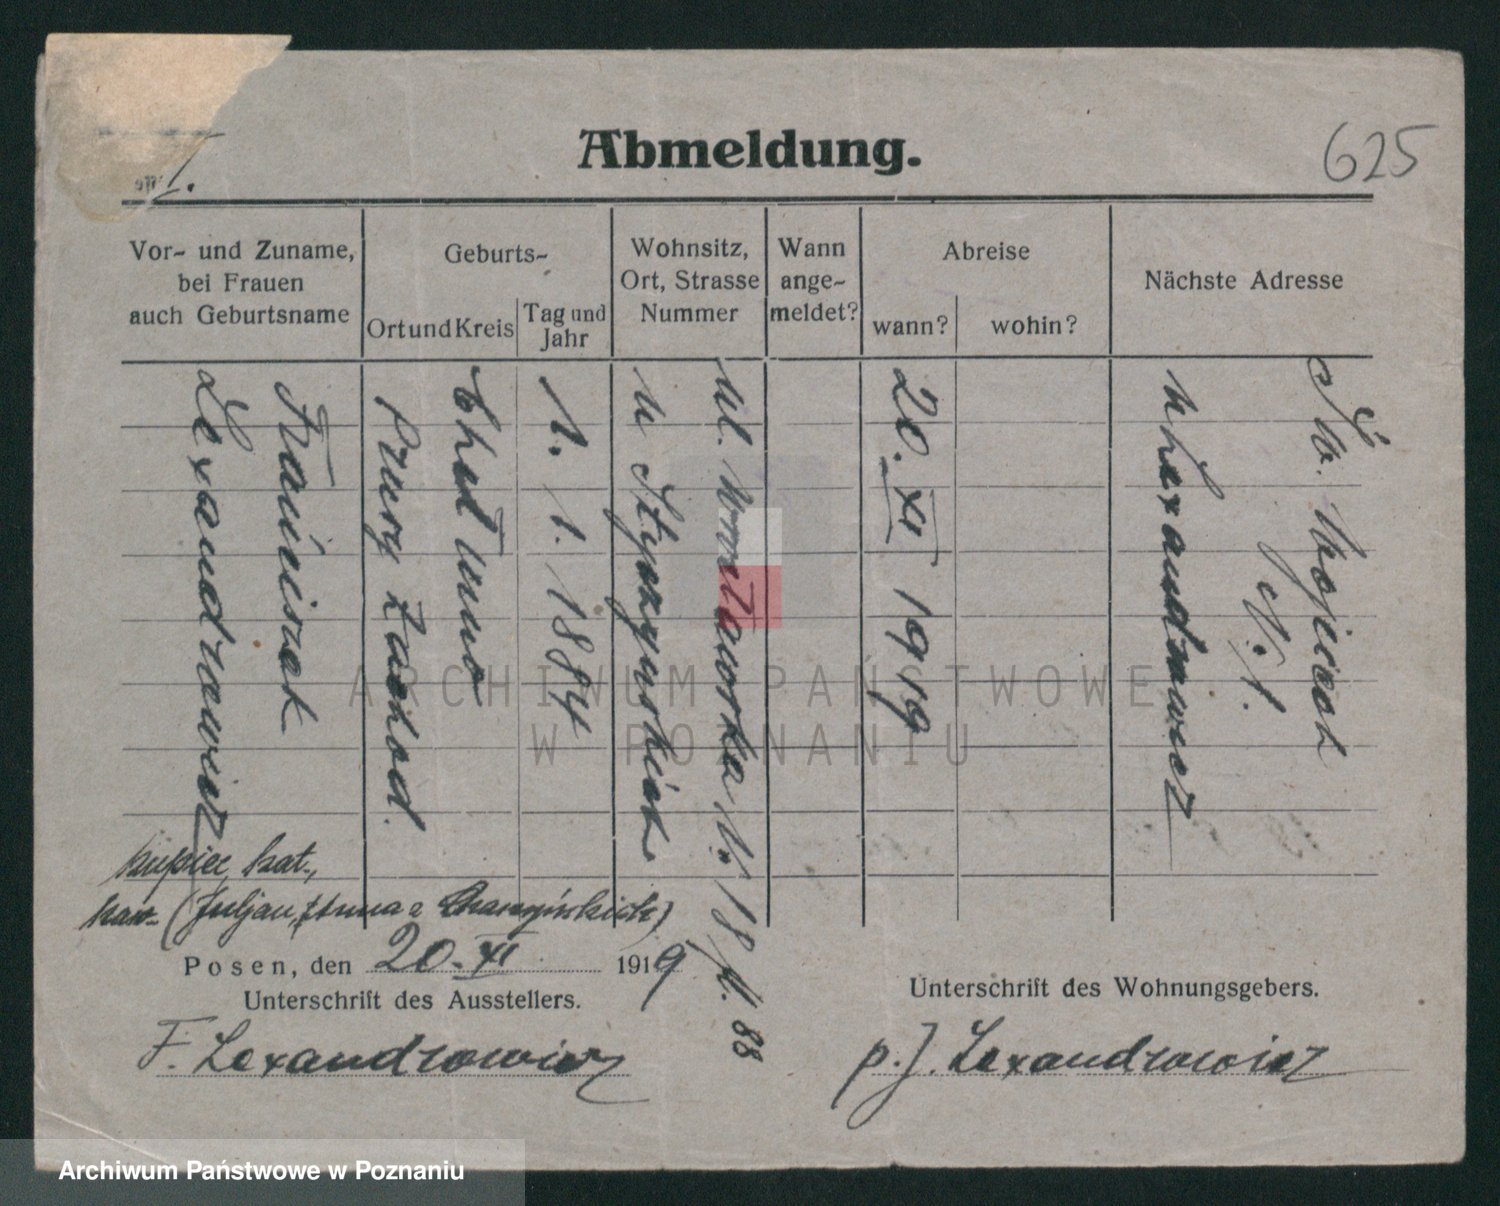 Abmeldung.
625
Vor- und Zuname,
bei Frauen
auch Geburtsname
Geburts-
Ort und Kreis
Tag und
Jahr
Wohnsitz,
Ort, Strasse
Nummer
Wann
ange-
meldet?
Abreise
wann?
wohin?
Nächste Adresse
Franciszek
Lexandrowicz
Chełmno
Prusy Zachod.
1. 1. 1884
ul.
u Styczyńskich
20. XI 1919
Św. Wojciech
N. 1.
u Lexandrowicz
kupiec, kat.,
kaw. (Juljan, Anna z
Posen, den 20. XI 1919
Unterschrift des Ausstellers.
F. Lexandrowicz
Unterschrift des Wohnungsgebers.
p. J. Lexandrowicz
88
ARCHIWUM PAŃSTWOWE
W POZNANIU
Archiwum Państwowe w Poznaniu